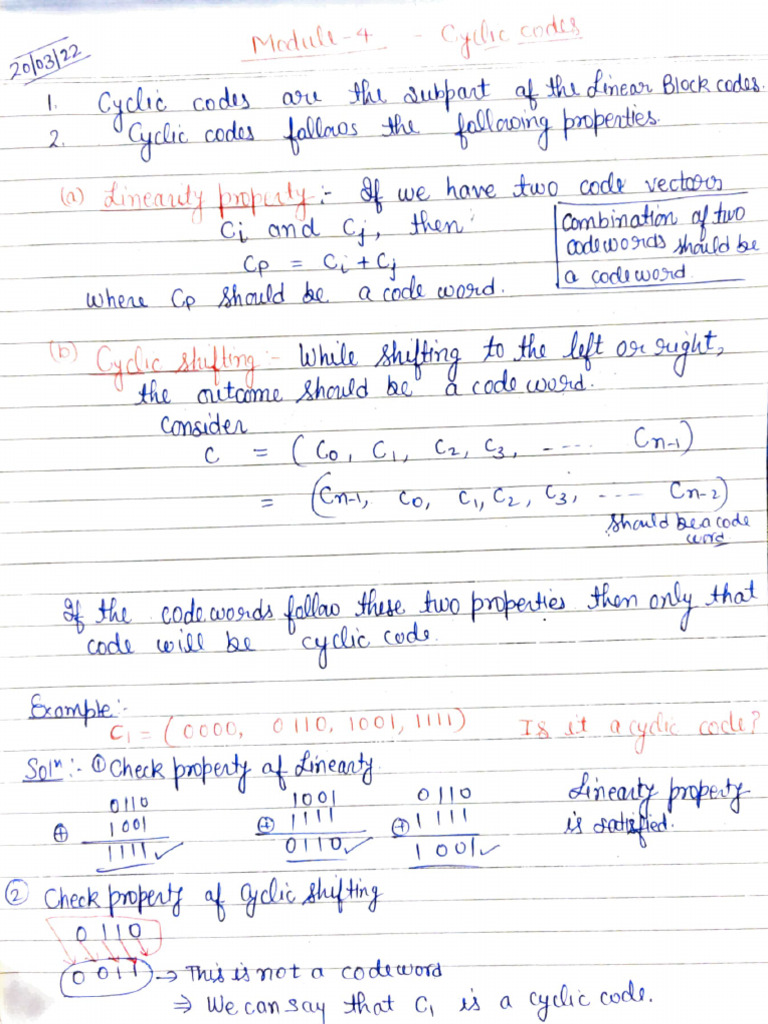 20/03/22
Module-4 - Cyclic codes
1. Cyclic codes are the subpart of the Linear Block codes.
2. Cyclic codes follows the following properties.
(a) Linearity property :- If we have two code vectors
Ci and Cj, then
Cp = Ci + Cj
where Cp should be a code word.
Combination of two
codewords should be
a codeword.
(b) Cyclic shifting :- While shifting to the left or right,
the outcome should be a code word.
Consider
C = (C0, C1, C2, C3, ..... Cn-1)
= (Cn-1, C0, C1, C2, C3, ..... Cn-2)
should be a code
word
If the codewords follow these two properties then only that
code will be cyclic code.
Example:-
C1 = (0000, 0110, 1001, 1111) Is it a cyclic code?
Solⁿ :- ① Check property of Linearty.
0110 1001 0110
⊕ 1001 ⊕ 1111 ⊕ 1111
1111 ✓ 0110 ✓ 1001 ✓
Linearty property
is satisfied.
② Check property of Cyclic shifting
0110
0011 → This is not a codeword
⇒ We can say that C1 is a cyclic code.